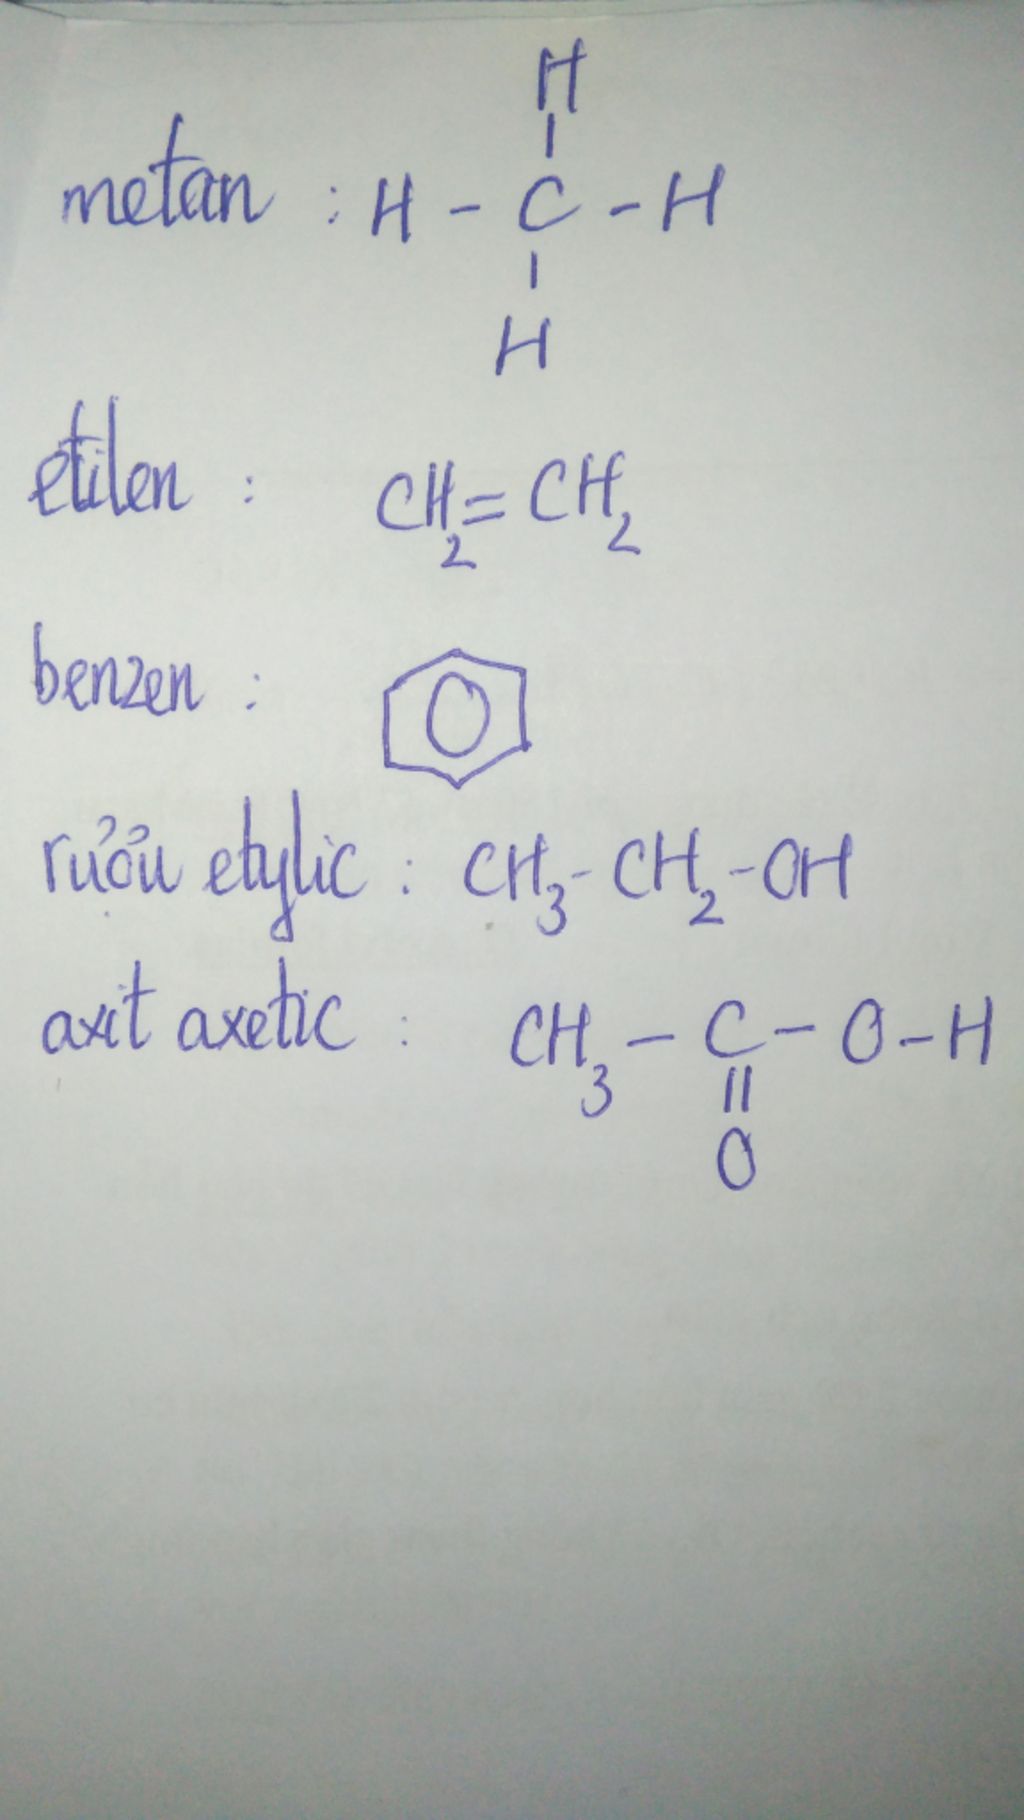 H
metan : H - C - H
H
etilen : CH₂ = CH₂
benzen :
rượu etylic : CH₃ - CH₂ - OH
axit axetic : CH₃ - C - O - H
O